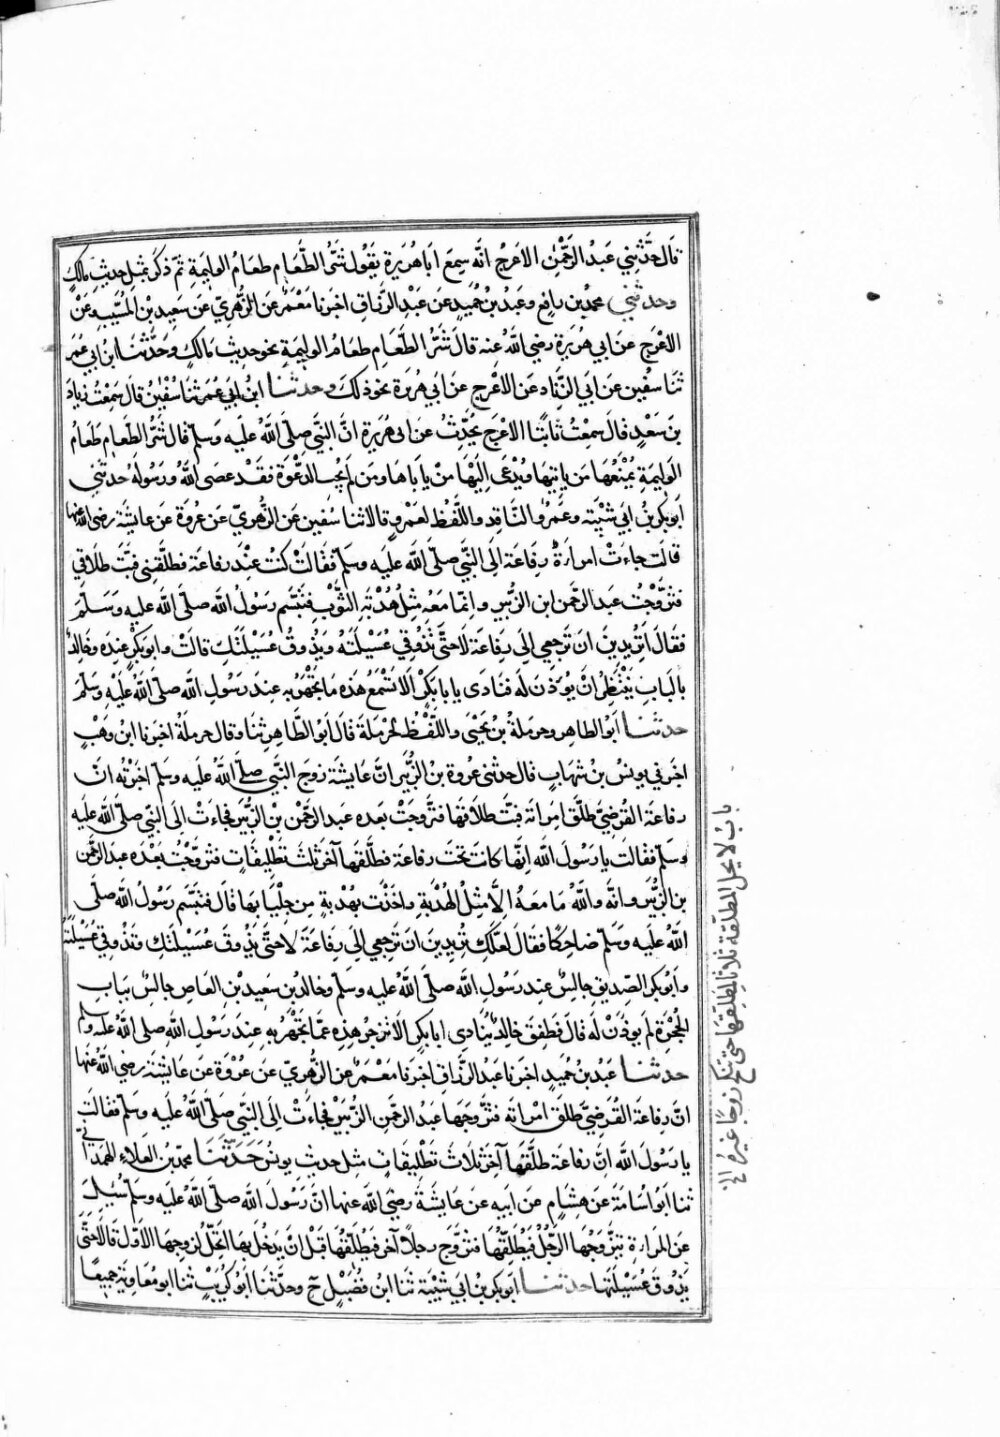 قال حدثني عبد الرحمن الاعرج انه سمع ابا هريرة يقول شر الطعام طعام الوليمة ثم ذكر بمثل حديث مالك
وحدثني محمد بن رافع وعبد بن حميد عن عبد الرزاق اخبرنا معمر عن الزهري عن سعيد بن المسيب وعن
الاعرج عن ابي هريرة رضي الله عنه قال شر الطعام طعام الوليمة نحو حديث مالك وحدثنا ابن ابي عمر
ثنا سفين عن ابي الزناد عن الاعرج عن ابي هريرة نحو ذلك وحدثنا ابن ابي عمر ثنا سفين قال سمعت زياد
بن سعد قال سمعت ثابتا الاعرج يحدث عن ابي هريرة ان النبي صلى الله عليه وسلم قال شر الطعام طعام
الوليمة يمنعها من ياتيها ويدعى اليها من ياباها ومن لم يجب الدعوة فقد عصى الله ورسوله حدثني
ابو بكر بن ابي شيبة وعمرو الناقد واللفظ لعمرو قالا ثنا سفين عن الزهري عن عروة عن عايشة رضي الله عنها
قالت جاءت امراة رفاعة الى النبي صلى الله عليه وسلم فقالت كنت عند رفاعة فطلقني فبت طلاقي
فتزوجت عبد الرحمن ابن الزبير وانما معه مثل هدبة الثوب فتبسم رسول الله صلى الله عليه وسلم
فقال اتريدين ان ترجعي الى رفاعة لا حتى تذوقي عسيلته ويذوق عسيلتك قالت وابو بكر عنده وخالد
بالباب ينتظر ان يوذن له فنادى يا با بكر الا تسمع هذه ما تجهر به عند رسول الله صلى الله عليه وسلم
حدثنا ابو الطاهر وحرملة بن يحيى واللفظ لحرملة قال ابو الطاهر ثنا وقال حرملة اخبرنا ابن وهب
اخبرني يونس بن شهاب قال حدثني عروة بن الزبير ان عايشة زوج النبي صلى الله عليه وسلم اخبرته ان
رفاعة القرضي طلق امراته فبت طلاقها فتزوجت بعده عبد الرحمن بن الزبير فجاءت الى النبي صلى الله عليه
وسلم فقالت يا رسول الله انها كانت تحت رفاعة فطلقها آخر ثلث تطليقات فتزوجت بعده عبد الرحمن
بن الزبير وانه والله ما معه الا مثل الهدبة واخذت بهدبة من جلبابها قال فتبسم رسول الله صلى
الله عليه وسلم ضاحكا فقال لعلك تريدين ان ترجعي الى رفاعة لا حتى يذوق عسيلتك وتذوقي عسيلته
وابو بكر الصديق جالس عند رسول الله صلى الله عليه وسلم وخالد بن سعيد بن العاص جالس بباب
الحجرة لم يوذن له قال فطفق خالد ينادي ابا بكر الا تزجر هذه عما تجهر به عند رسول الله صلى الله عليه وسلم
حدثنا عبد بن حميد اخبرنا عبد الرزاق اخبرنا معمر عن الزهري عن عروة عن عايشة رضي الله عنها
ان رفاعة القرضي طلق امراته فتزوجها عبد الرحمن الزبير فجاءت الى النبي صلى الله عليه وسلم فقالت
يا رسول الله ان رفاعة طلقها آخر ثلاث تطليقات مثل حديث يونس حدثنا محمد بن العلاء الهمداني
ثنا ابو اسامة عن هشام عن ابيه عن عايشة رضي الله عنها ان رسول الله صلى الله عليه وسلم سئيل
عن المراة يتزوجها الرجل فيطلقها فتزوج رجلا آخر فيطلقها قبل ان يدخل بها اتحل لزوجها الاول قال لا حتى
يذوق عسيلتها حدثنا ابو بكر بن ابي شيبة ثنا ابن فضيل ح وحدثنا ابو كريب ثنا ابو معاوية جميعا
باب لا يحل المطلقة ثلاثا لمطلقها حتى تنكح زوجا غيره الخ